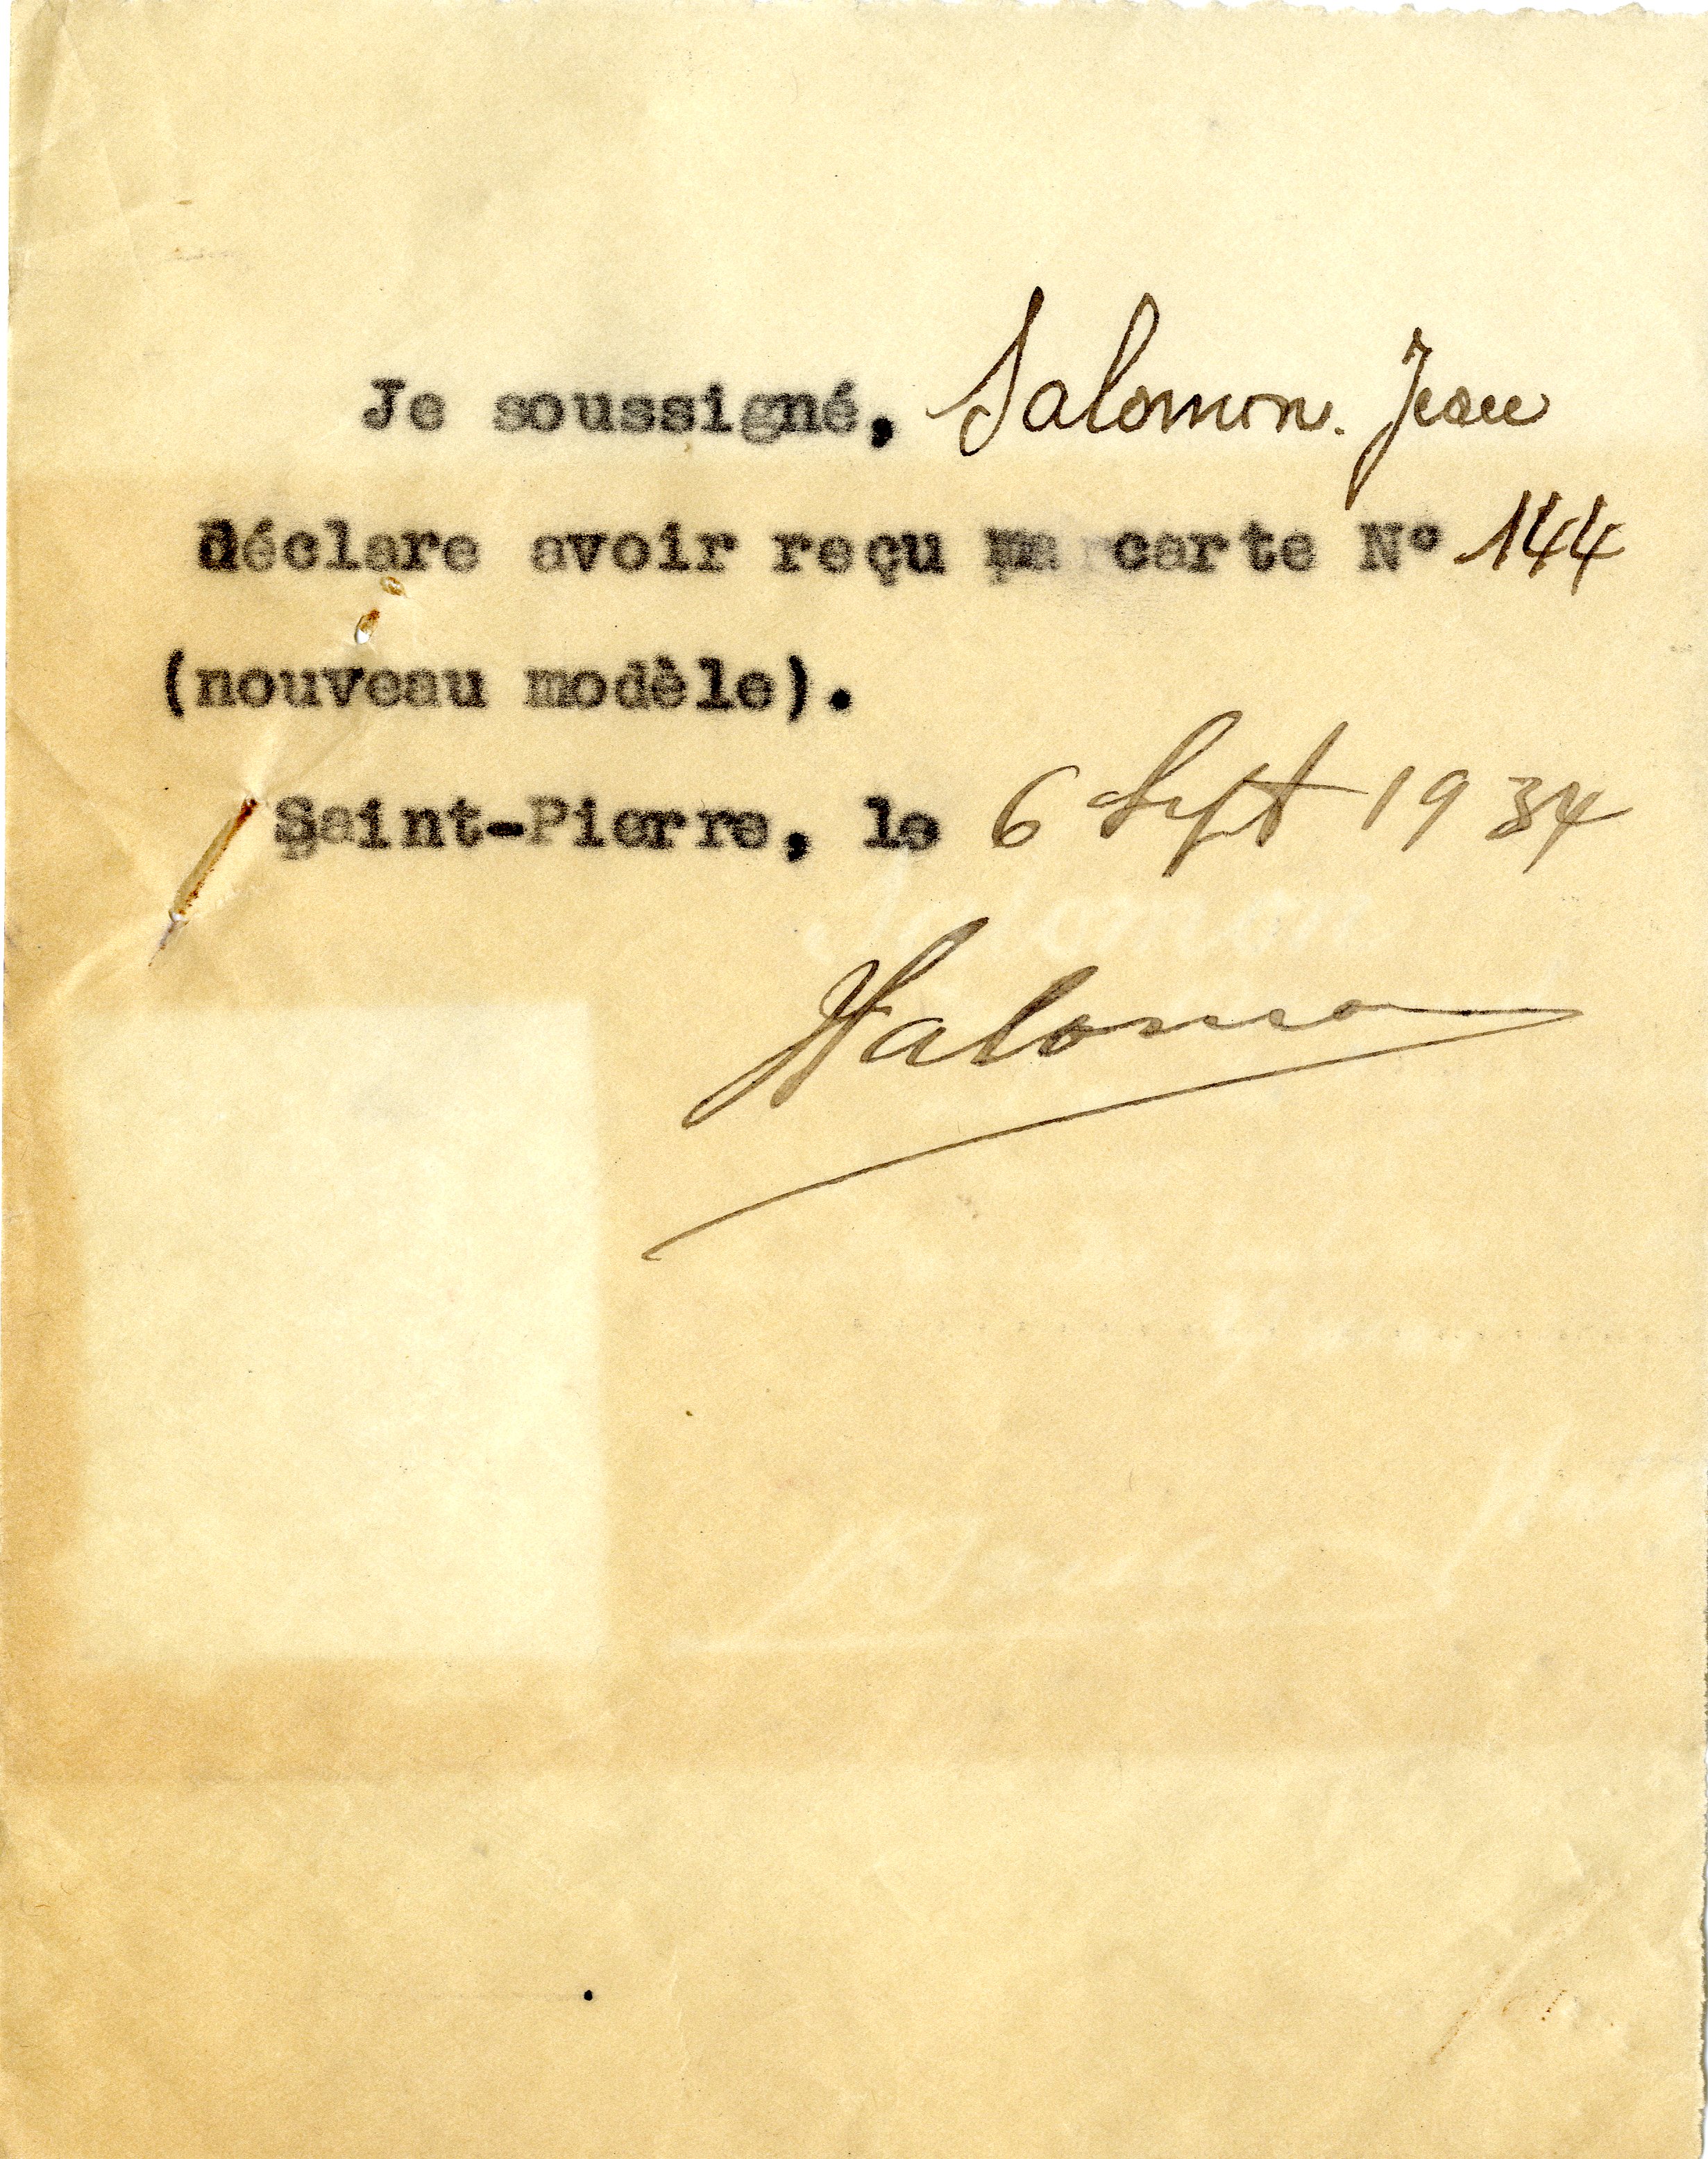 Je soussigné, Salomon. Jean
déclare avoir reçu ma carte Nº 144
(nouveau modèle).
Saint-Pierre, le 6 Sept 1934
Salomon